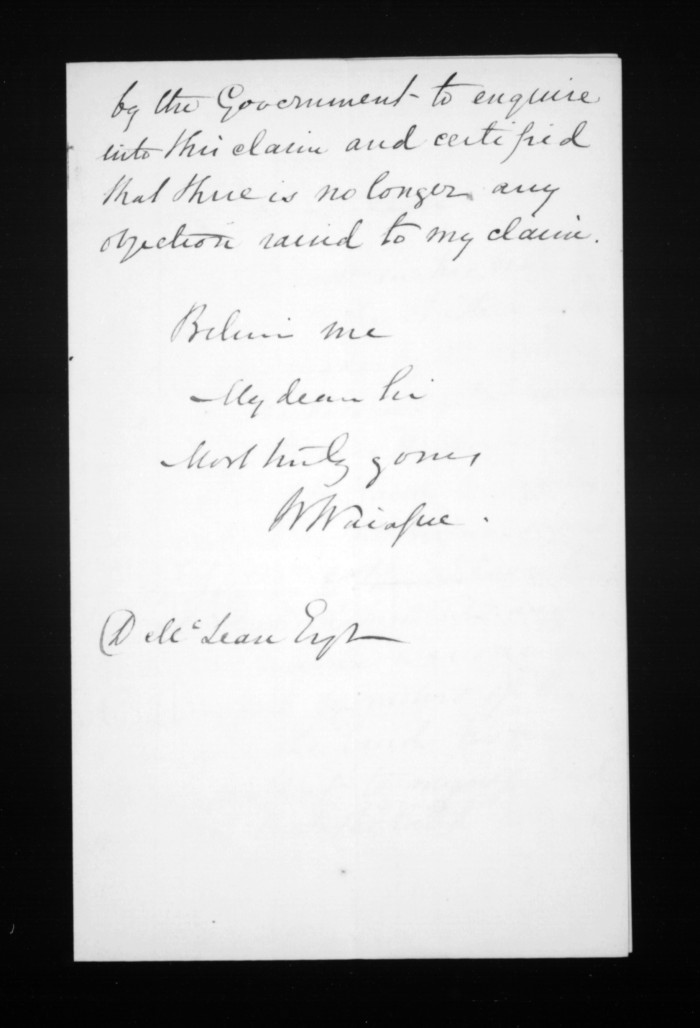 by the Government to enquire
into this claim and certified
that there is no longer any
objection raised to my claim.
Believe me
My dear Sir
Most truly yours
D McLean Esqr